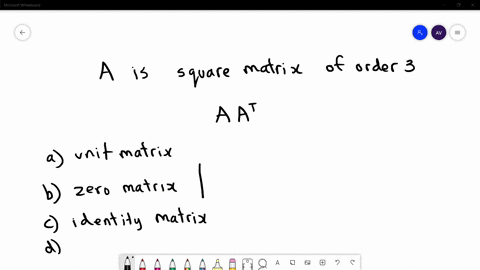 Microsoft Whiteboard
AV
A is square matrix of order 3
A Aᵀ
a) unit matrix
b) zero matrix
c) identity matrix
d)